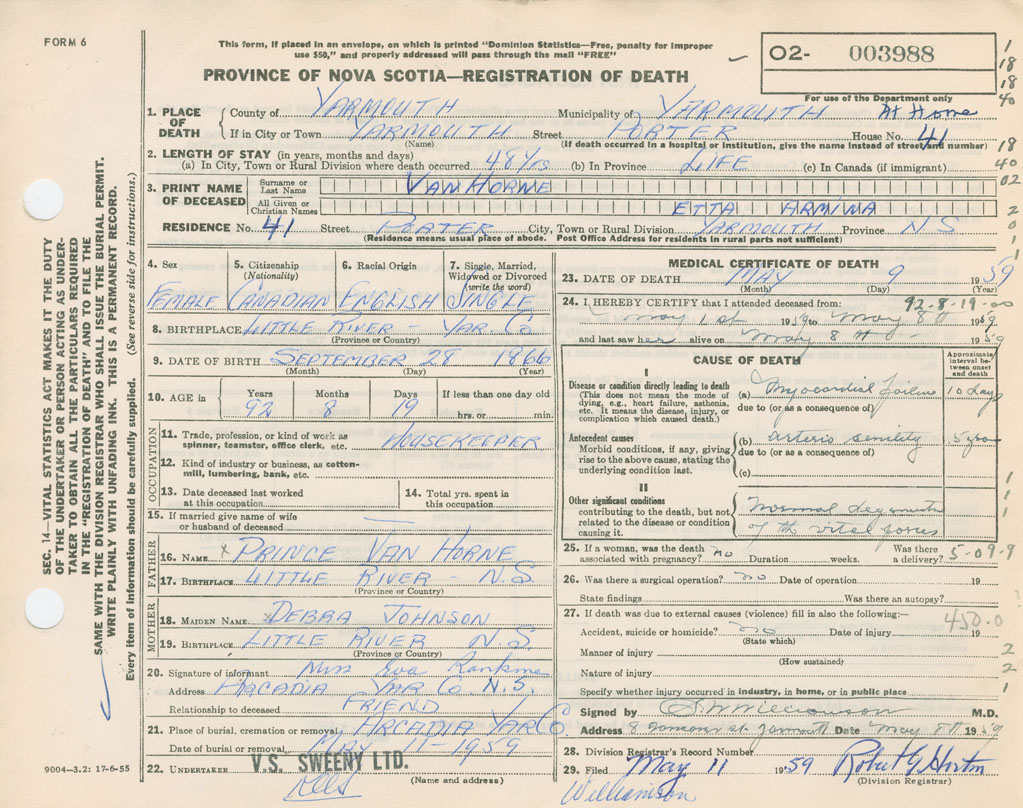 FORM 6
This form, if placed in an envelope, on which is printed "Dominion Statistics—Free, penalty for improper
use $50," and properly addressed will pass through the mail "FREE"
PROVINCE OF NOVA SCOTIA—REGISTRATION OF DEATH
02- 003988
For use of the Department only
1. PLACE OF DEATH
County of YARMOUTH Municipality of YARMOUTH At Home
If in City or Town YARMOUTH Street PORTER House No. 41
(Name) (If death occurred in a hospital or institution, give the name instead of street and number)
2. LENGTH OF STAY (in years, months and days)
(a) In City, Town or Rural Division where death occurred 48 Yrs (b) In Province LIFE (c) In Canada (if immigrant)
3. PRINT NAME OF DECEASED
Surname or Last Name VAN HORNE
All Given or Christian Names ETTA ARMINA
RESIDENCE No. 41 Street PORTER City, Town or Rural Division YARMOUTH Province N S
(Residence means usual place of abode. Post Office Address for residents in rural parts not sufficient)
4. Sex 5. Citizenship (Nationality) 6. Racial Origin 7. Single, Married, Widowed or Divorced (write the word)
FEMALE CANADIAN ENGLISH SINGLE
8. BIRTHPLACE LITTLE RIVER - YAR. Co
(Province or Country)
9. DATE OF BIRTH SEPTEMBER 28 1866
(Month) (Day) (Year)
10. AGE in Years Months Days If less than one day old
92 8 19 hrs. or min.
OCCUPATION
11. Trade, profession, or kind of work as spinner, teamster, office clerk, etc. HOUSEKEEPER
12. Kind of industry or business, as cotton-mill, lumbering, bank, etc.
13. Date deceased last worked at this occupation
14. Total yrs. spent in this occupation
15. If married give name of wife or husband of deceased
FATHER
16. NAME x PRINCE VAN HORNE
17. BIRTHPLACE LITTLE RIVER - N.S
(Province or Country)
MOTHER
18. MAIDEN NAME DEBRA JOHNSON
19. BIRTHPLACE LITTLE RIVER N.S
(Province or Country)
20. Signature of informant Miss Eva
Address ARCADIA YAR Co N.S.
Relationship to deceased FRIEND
21. Place of burial, cremation or removal ARCADIA YAR Co.
Date of burial or removal MAY 11-1959
22. UNDERTAKER V.S. SWEENY LTD.
(Name and address)
MEDICAL CERTIFICATE OF DEATH
23. DATE OF DEATH MAY 9 1959
(Month) (Day) (Year)
24. I HEREBY CERTIFY that I attended deceased from: 92-8-19-00
May 1st 1959 to May 8th 1959
and last saw her alive on May 8th 1959
CAUSE OF DEATH
Approximate interval between onset and death
I
Disease or condition directly leading to death
(This does not mean the mode of dying, e.g., heart failure, asthenia, etc. It means the disease, injury, or complication which caused death.)
(a) Myocardial failure 10 days
due to (or as a consequence of)
Antecedent causes
Morbid conditions, if any, giving rise to the above cause, stating the underlying condition last.
(b) senility 5 years
due to (or as a consequence of)
(c)
II
Other significant conditions
contributing to the death, but not related to the disease or condition causing it.
Normal
of the vital forces
25. If a woman, was the death associated with pregnancy? no Duration weeks. Was there a delivery? 5-09-9
26. Was there a surgical operation? no Date of operation 19
State findings Was there an autopsy?
27. If death was due to external causes (violence) fill in also the following:—
450.0
Accident, suicide or homicide? no Date of injury 19
(State which)
Manner of injury
(How sustained)
Nature of injury
Specify whether injury occurred in industry, in home, or in public place
Signed by Williamson M.D.
Address Yarmouth Date May 8th 1959
28. Division Registrar's Record Number
29. Filed May 11 1959 Robert G Horton
(Division Registrar)
Williamson
SEC. 14—VITAL STATISTICS ACT MAKES IT THE DUTY
OF THE UNDERTAKER OR PERSON ACTING AS UNDER-
TAKER TO OBTAIN ALL THE PARTICULARS REQUIRED
IN THE "REGISTRATION OF DEATH" AND TO FILE THE
SAME WITH THE DIVISION REGISTRAR WHO SHALL ISSUE THE BURIAL PERMIT.
WRITE PLAINLY WITH UNFADING INK. THIS IS A PERMANENT RECORD.
Every item of information should be carefully supplied. (See reverse side for instructions.)
9004—3.2: 17-6-55
1
18
18
40
18
40
02
2
0
1
1
1
1
2
2
1